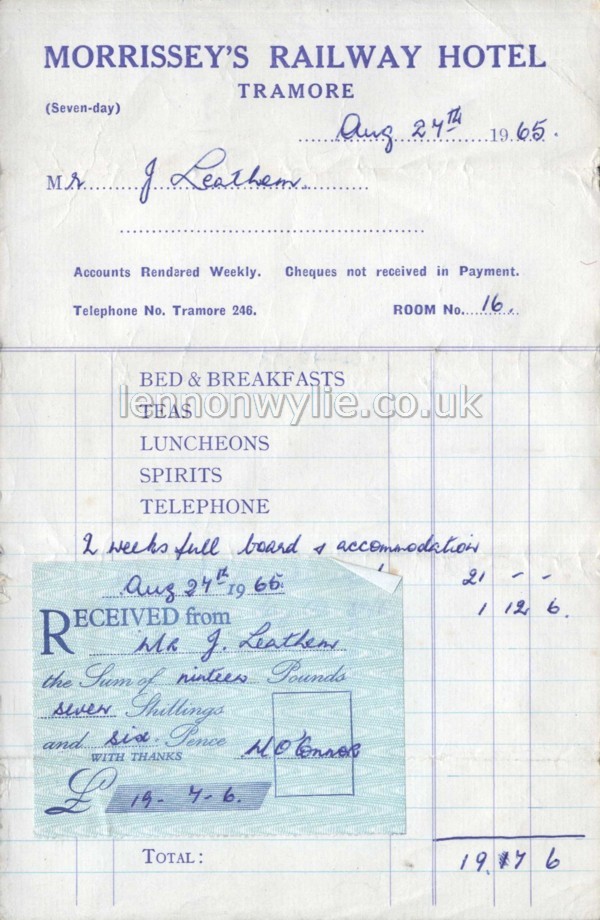 MORRISSEY'S RAILWAY HOTEL
TRAMORE
(Seven-day)
Aug 24th 1965.
Mr J Leathem
Accounts Rendared Weekly. Cheques not received in Payment.
Telephone No. Tramore 246. ROOM No. 16.
BED & BREAKFASTS
lennonwylie.co.uk
TEAS
LUNCHEONS
SPIRITS
TELEPHONE
2 weeks full board & accommodation
21 - -
1 12 6.
Aug 24th 1965.
RECEIVED from
Mr J. Leathem
the Sum of ninteen Pounds
seven Shillings
and six. Pence
WITH THANKS
M O'Connor
£ 19 - 7 - 6.
TOTAL: 19. 17 6